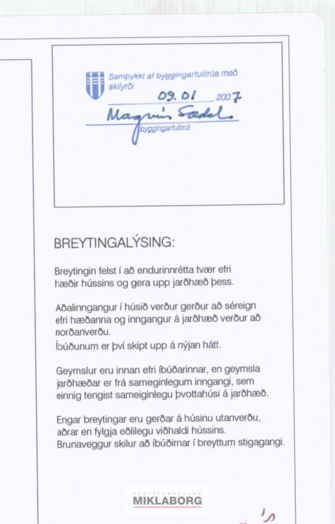 Samþykkt af byggingarfulltrúa með
skilyrði
09.01 2007
Magnús Sædal
byggingarfulltrúi
BREYTINGALÝSING:
Breytingin felst í að endurinnrétta tvær efri
hæðir hússins og gera upp jarðhæð þess.
Aðalinngangur í húsið verður gerður að séreign
efri hæðanna og inngangur á jarðhæð verður að
norðanverðu.
Íbúðunum er því skipt upp á nýjan hátt.
Geymslur eru innan efri íbúðarinnar, en geymsla
jarðhæðar er frá sameginlegum inngangi, sem
einnig tengist sameiginlegu þvottahúsi á jarðhæð.
Engar breytingar eru gerðar á húsinu utanverðu,
aðrar en fylgja eðlilegu viðhaldi hússins.
Brunaveggur skilur að íbúðirnar í breyttum stigagangi.
MIKLABORG